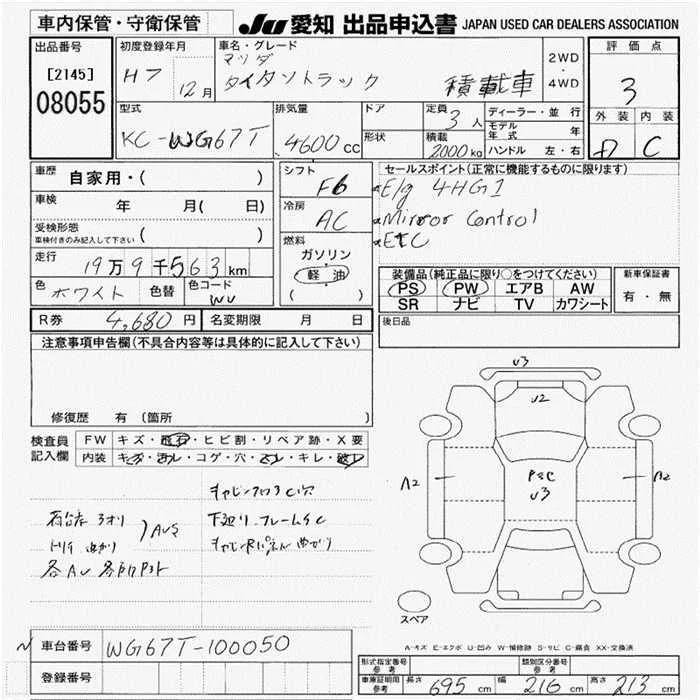 車内保管・守衛保管
JU 愛知 出品申込書 JAPAN USED CAR DEALERS ASSOCIATION
出品番号 初度登録年月 車名・グレード 評価点
[2145] H7 12月 マツダ 2WD ・ 4WD 3
08055 タイタントラック 積載車
型式 排気量 ドア 定員 3人 ディーラー・並行 外装 内装
KC-WG67T 4600cc 形状 積載 2000kg モデル年式 年 C
ハンドル 左・右
車歴 自家用・( ) シフト F6 セールスポイント(正常に機能するものに限ります)
車検 年 月( 日) 冷房 AC E/g 4HG1
受検形態 ( ) Mirror Control
車検付きのみ記入して下さい 燃料 ETC
走行 19万9千563km ガソリン
軽油
( )
装備品(純正品に限り○をつけてください) 新車保証書
PS PW エアB AW 有・無
SR ナビ TV カワシート
色 ホワイト 色替 色コード WU
R券 4,680円 名変期限 月 日 後日品
注意事項申告欄(不具合内容等は具体的に記入して下さい)
修復歴 有 (箇所
検査員 FW キズ・飛石・ヒビ割・リペア跡・X要
記入欄 内装 キズ・汚レ・コゲ・穴・スレ・キレ・破レ
U3
U2
A2 P&C U3 A2
下廻り フレームサC
AU3
スペア
A-キズ E-エクボ U-凹み W-補修跡 S-サビ C-腐食 XX-交換済
車台番号 WG67T-100050
登録番号
形式指定番号 参考 類別区分番号 参考
車庫証明用 参考 長さ 695cm 幅 216cm 高さ 213cm